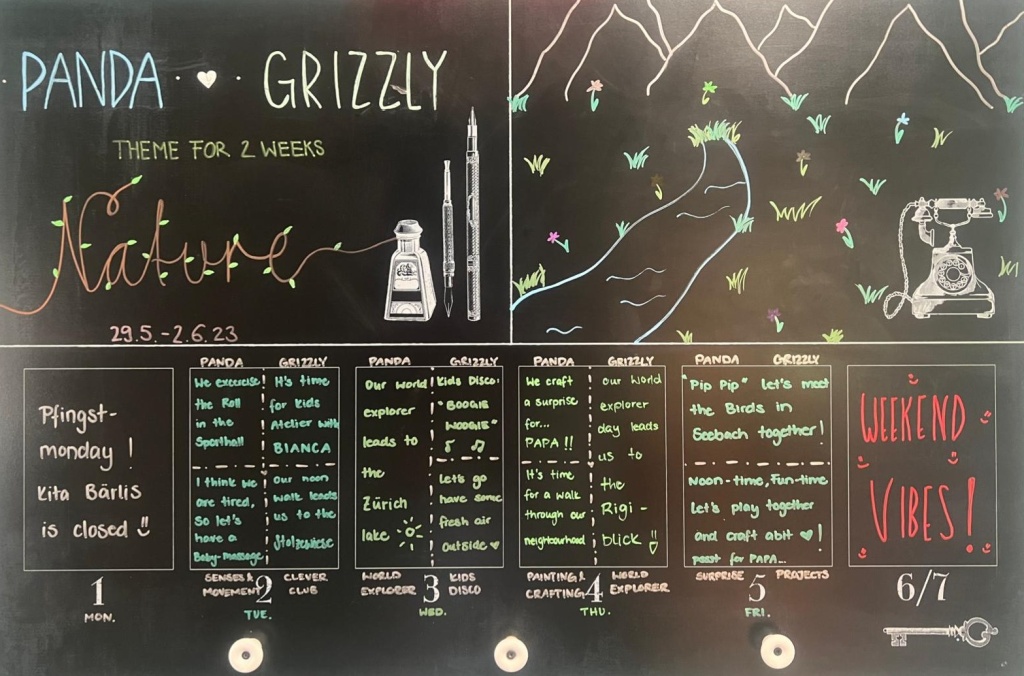 PANDA · ♥ · GRIZZLY
THEME FOR 2 WEEKS
Nature
29.5.-2.6.23
Pfingst-
monday !
Kita Bärlis
is closed
1
MON.
PANDA
We excercise
the Roll
in the
Sporthall
I think we
are tired,
So let's
have a
Baby-massage
GRIZZLY
It's time
for Kids
Atelier with
BIANCA
Our noon
walk leads
us to the
Stolzewiese
SENSES &
MOVEMENT
2
CLEVER
CLUB
TUE.
PANDA
Our World
explorer
leads to
the
Zürich
lake
GRIZZLY
Kids Disco:
"BOOGIE
WOOGIE"
Let's go
have some
fresh air
outside ♥
WORLD
EXPLORER
3
KIDS
DISCO
WED.
PANDA
We craft
a surprise
for...
PAPA !!
It's time
for a walk
through our
neighbourhood
GRIZZLY
our World
explorer
day leads
us to
the
Rigi-
blick
PAINTING &
CRAFTING
4
WORLD
EXPLORER
THU.
PANDA GRIZZLY
"Pip Pip" let's meet
the Birds in
Seebach together!
Noon-time, Fun-time
Let's play together
and craft abit ♥ !
pssst for PAPA...
SURPRISE
5
PROJECTS
FRI.
WEEKEND
VIBES!
6/7